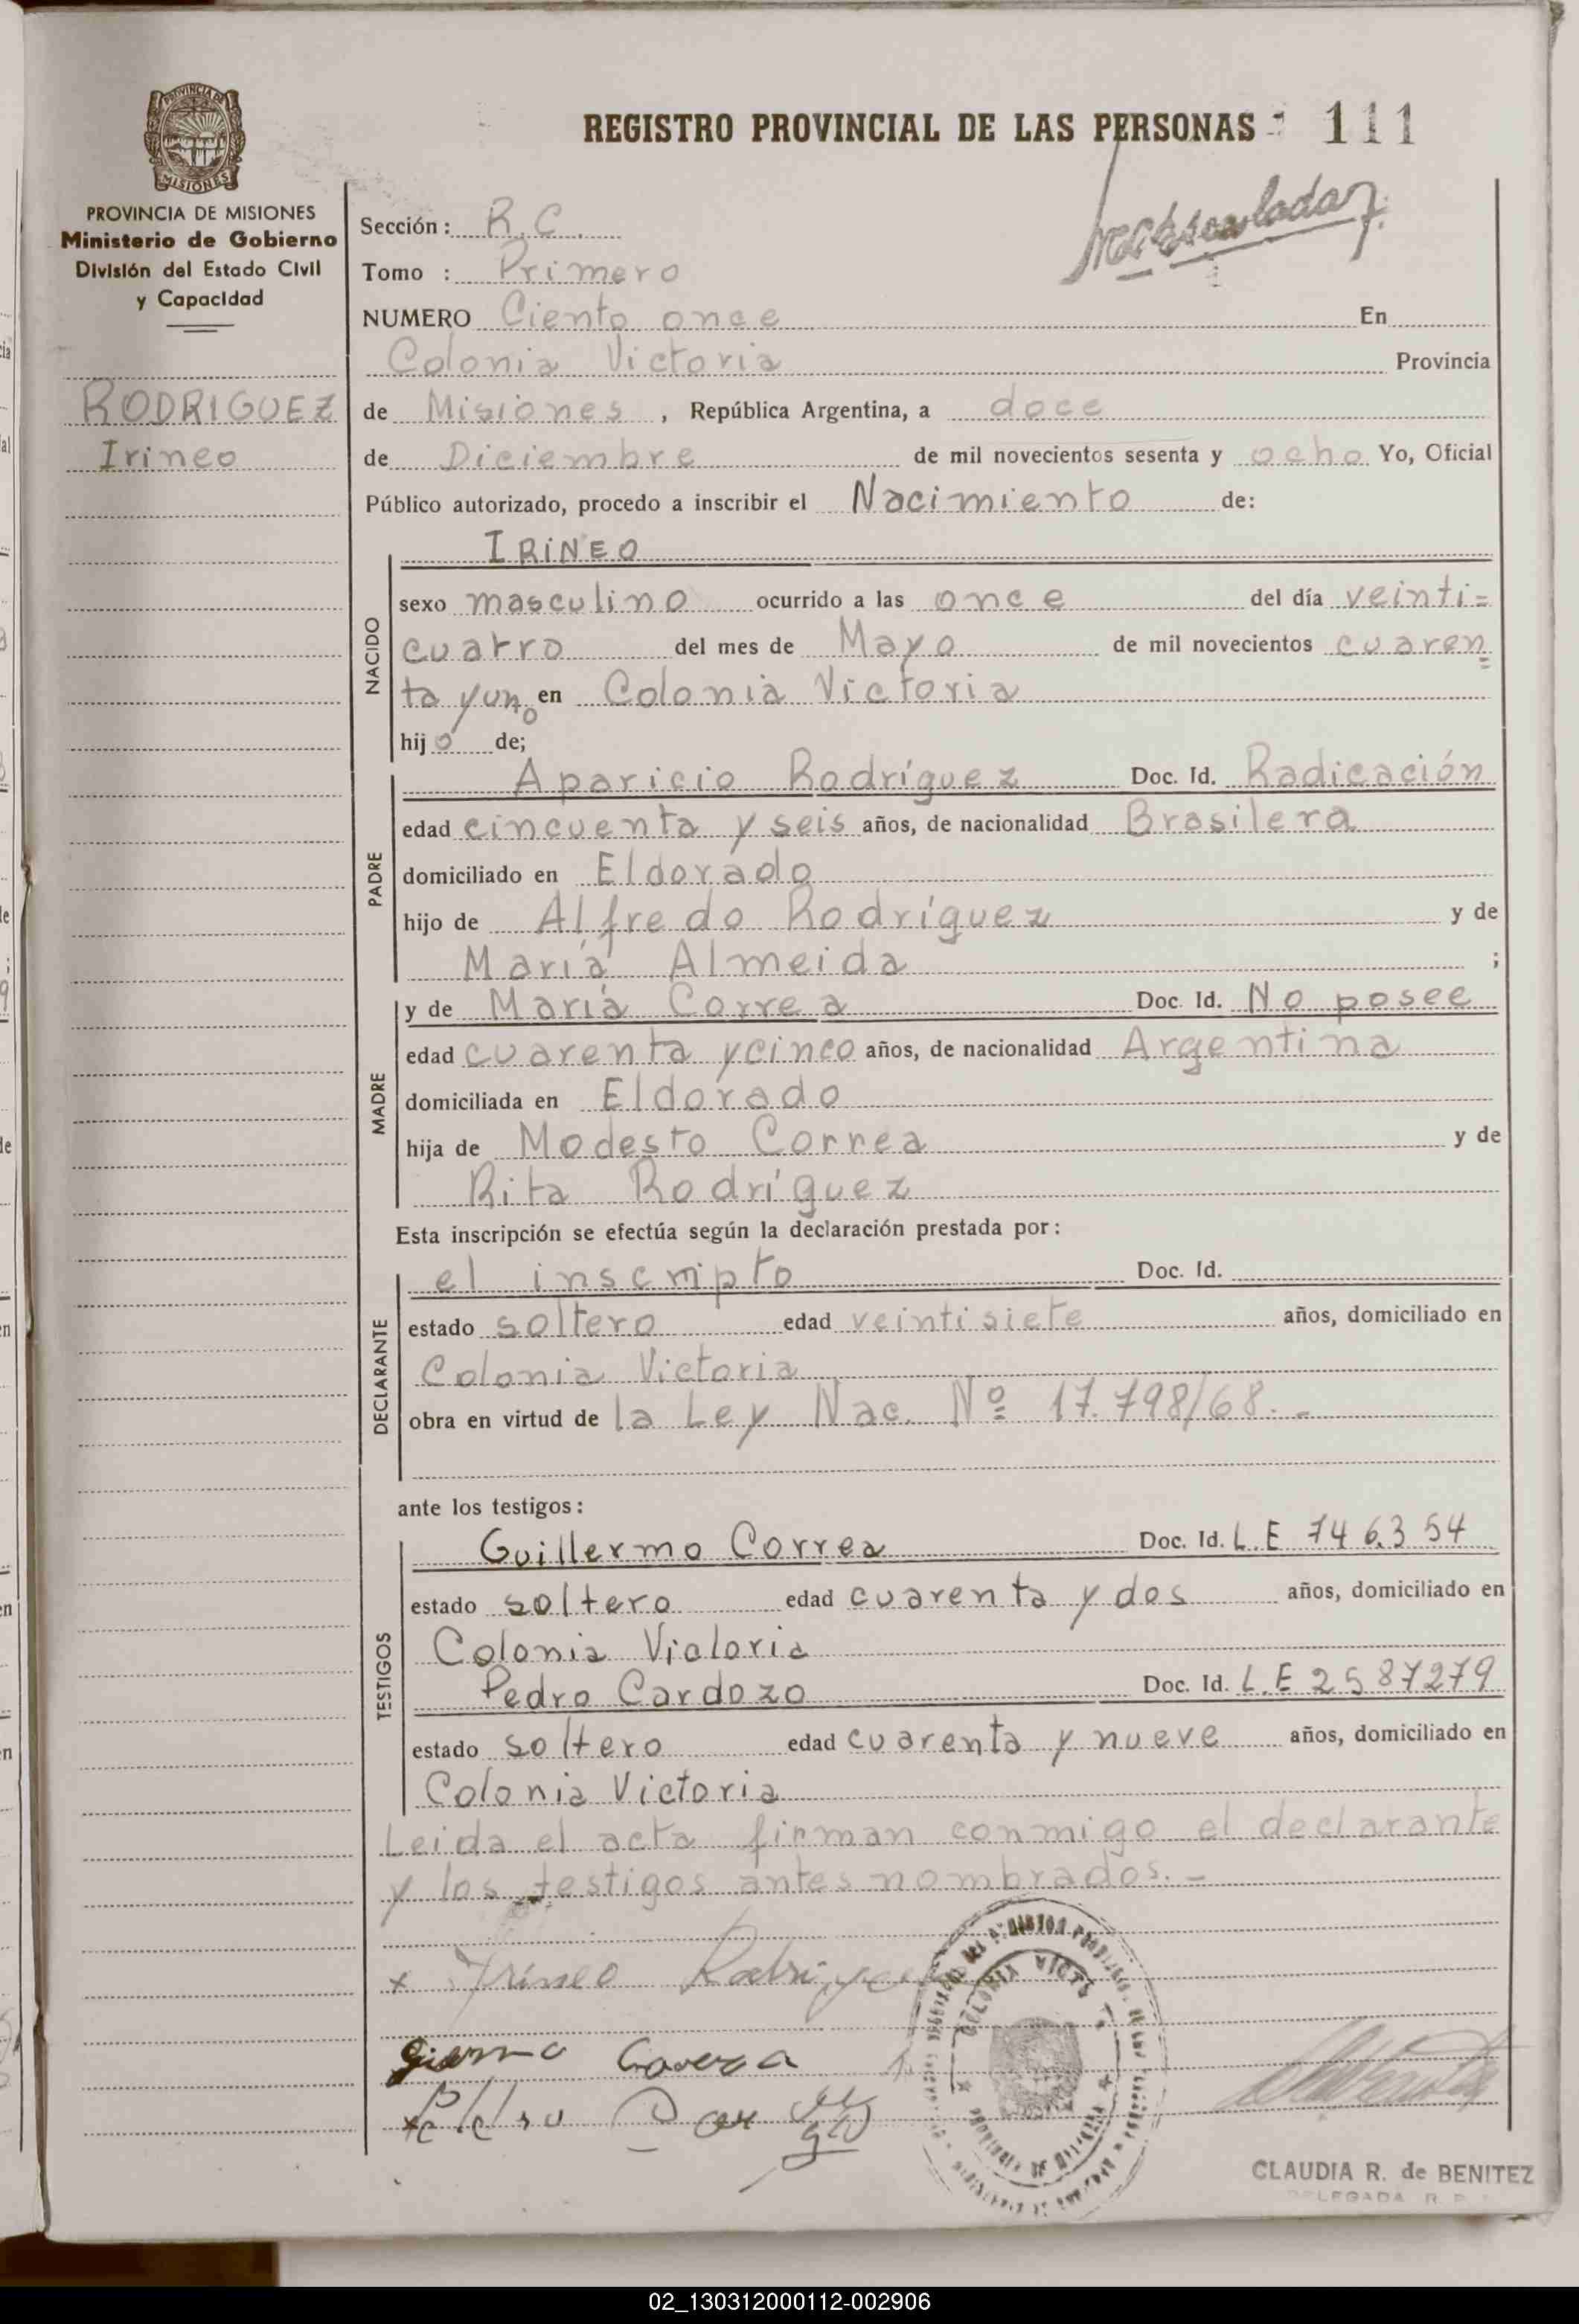 REGISTRO PROVINCIAL DE LAS PERSONAS 111
PROVINCIA DE MISIONES
Ministerio de Gobierno
División del Estado Civil
y Capacidad
RODRIGUEZ
Irineo
Sección: R.C.
Tomo : Primero
NUMERO Ciento once En
Colonia Victoria Provincia
de Misiones , República Argentina, a doce
de Diciembre de mil novecientos sesenta y ocho Yo, Oficial
Público autorizado, procedo a inscribir el Nacimiento de:
IRINEO
NACIDO
sexo masculino ocurrido a las once del día veinti=
cuatro del mes de Mayo de mil novecientos cuaren=
ta y uno en Colonia Victoria
hijo de;
PADRE
Aparicio Rodríguez Doc. Id. Radicación
edad cincuenta y seis años, de nacionalidad Brasilera
domiciliado en Eldorado
hijo de Alfredo Rodríguez y de
María Almeida ;
MADRE
y de María Correa Doc. Id. No posee
edad cuarenta y cinco años, de nacionalidad Argentina
domiciliada en Eldorado
hija de Modesto Correa y de
Rita Rodríguez
Esta inscripción se efectúa según la declaración prestada por:
DECLARANTE
el inscripto Doc. Id.
estado soltero edad veintisiete años, domiciliado en
Colonia Victoria
obra en virtud de la Ley Nac. Nº 17.798/68.-
ante los testigos:
TESTIGOS
Guillermo Correa Doc. Id. L.E 746.354
estado soltero edad cuarenta y dos años, domiciliado en
Colonia Victoria
Pedro Cardozo Doc. Id. L.E 2587279
estado soltero edad cuarenta y nueve años, domiciliado en
Colonia Victoria
Leida el acta firman conmigo el declarante
y los testigos antes nombrados.-
x Irineo Rodriguez
COLONIA VICTORIA
CLAUDIA R. de BENITEZ
DELEGADA R. P.
02_130312000112-002906